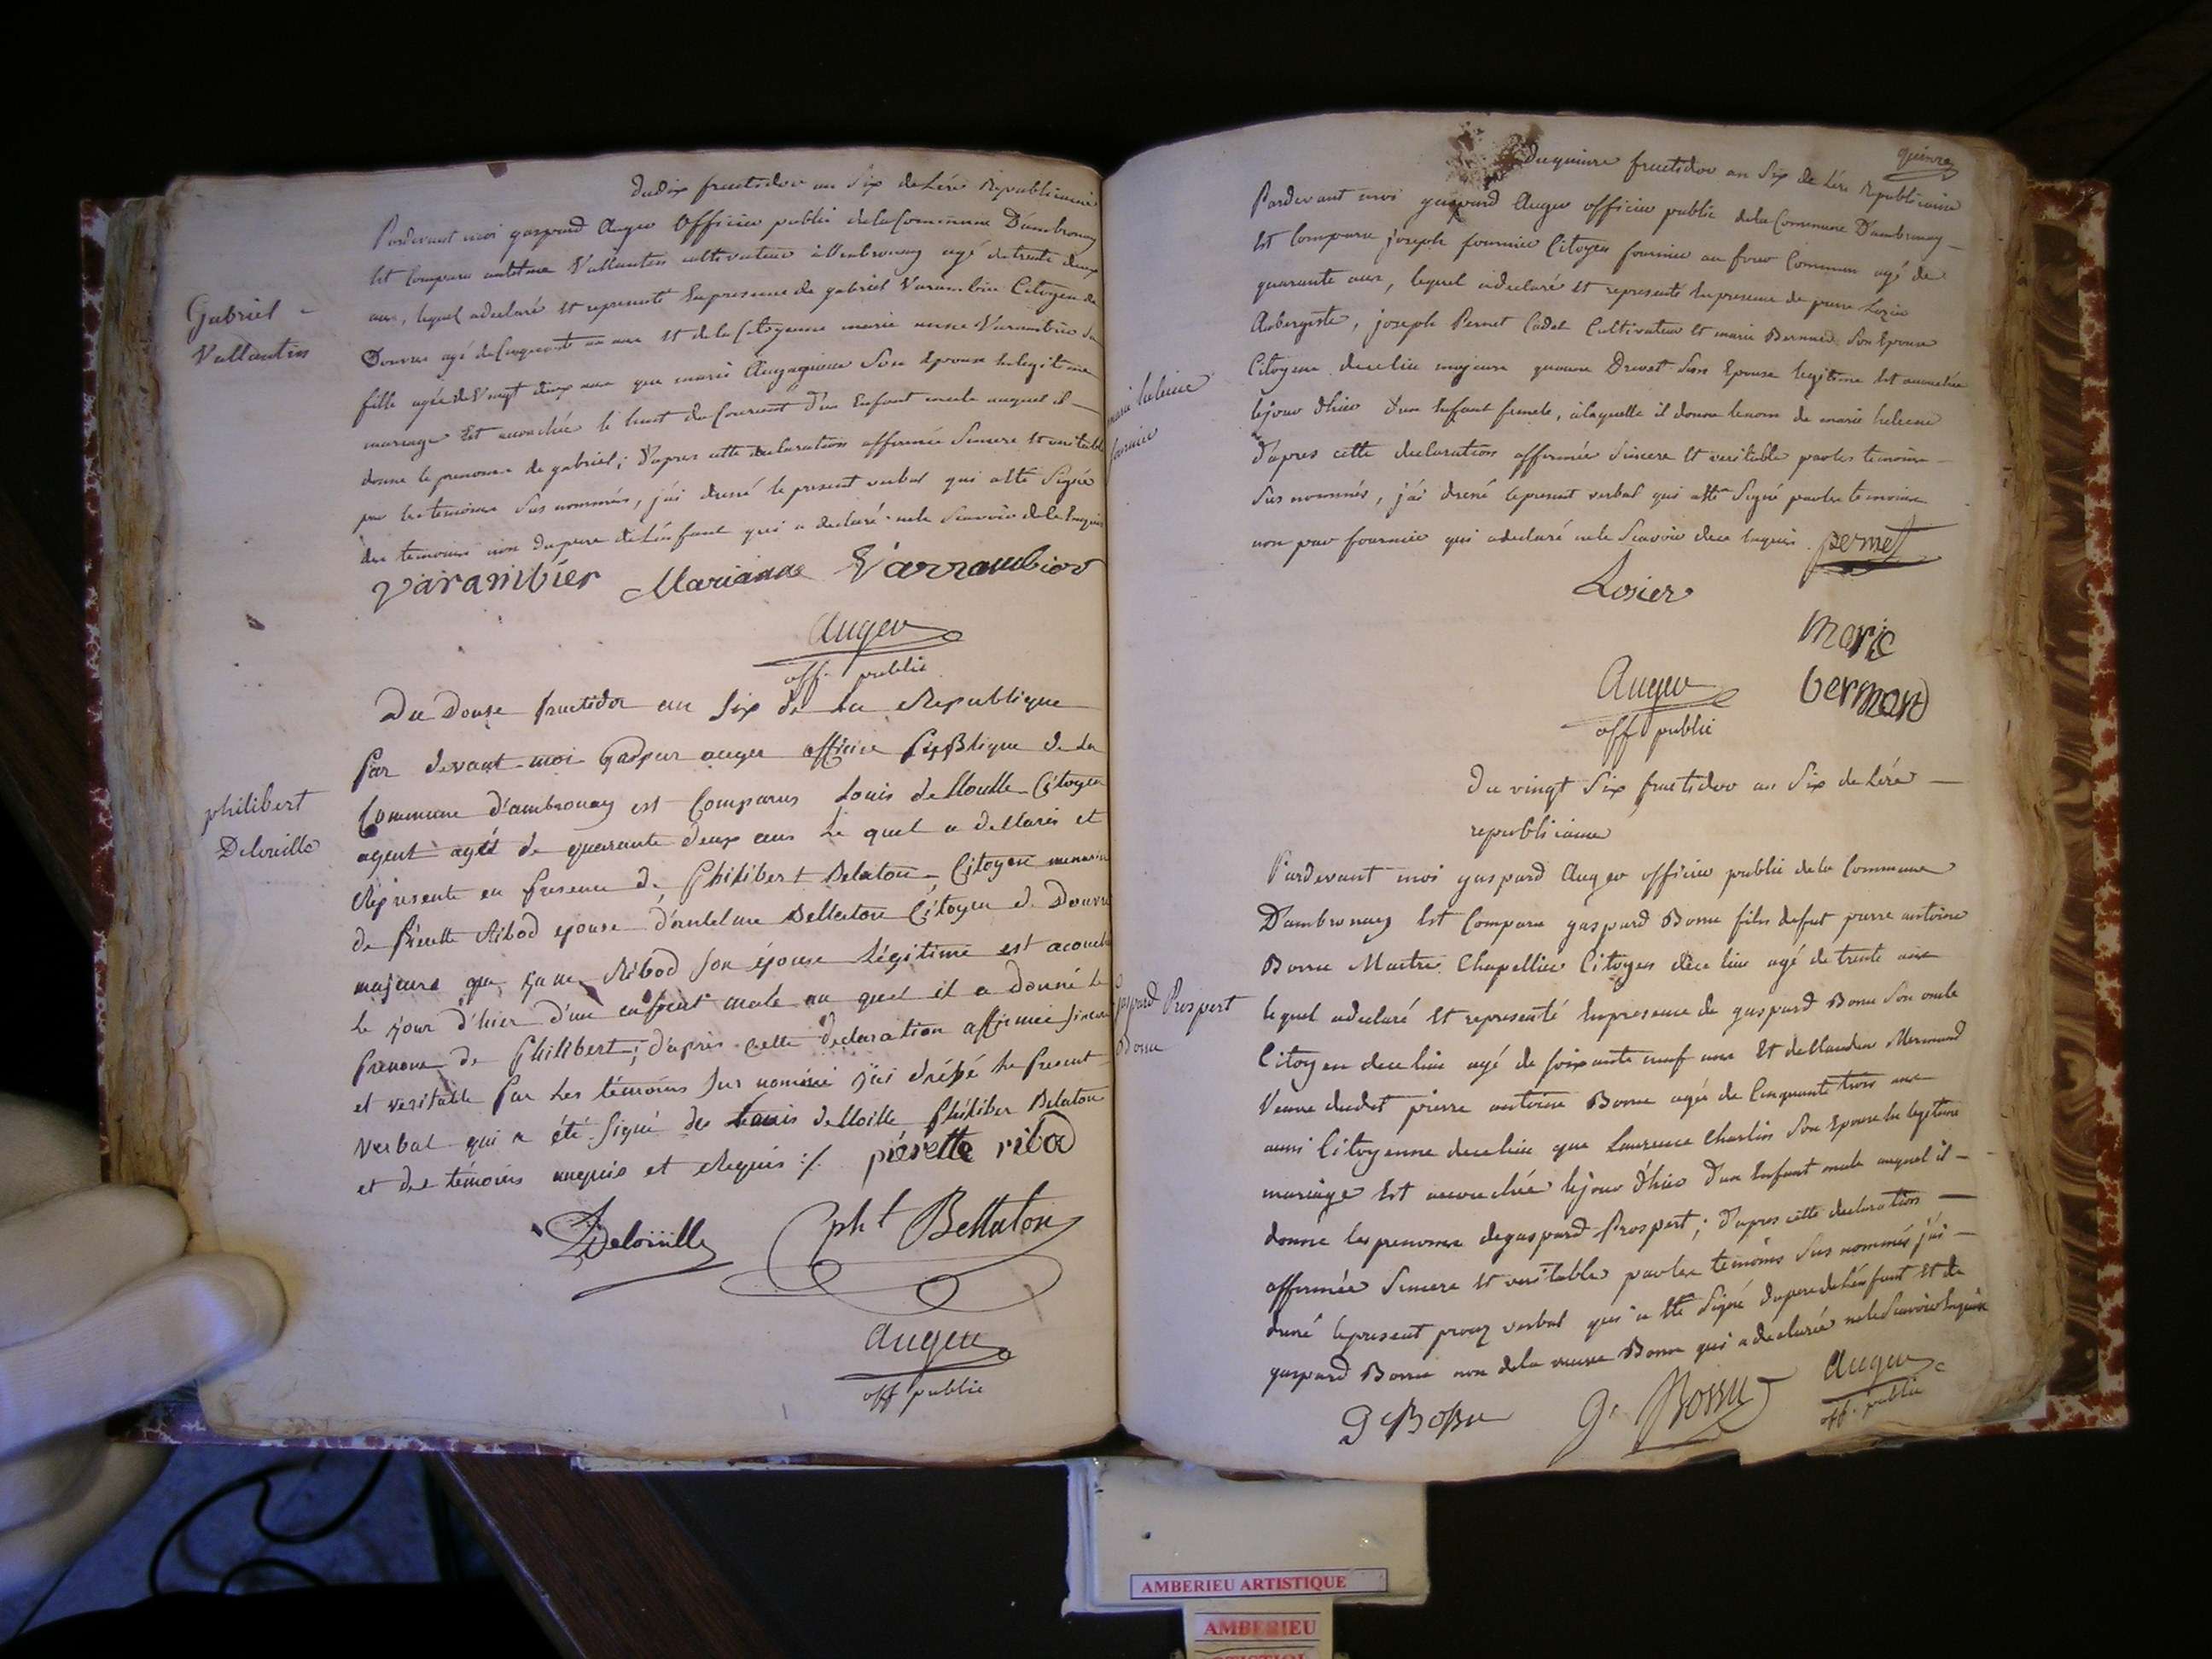 du dix fructidor an Six de Lére Republicaine
Pardevant moi gaspard Auger Officier public de la Commune D'ambronay
Est Comparu antelme Vallantin cultivateur à Ambronay agé de trente deux
ans, lequel a declaré et representé En presence de gabriel Varambier Citoyen de
Douvres agé de Cinquante un ans et de la Citoyenne marie anne Varambier sa
fille agée de Vingt deux ans que marie Son Epouse En legitime
mariage Est accouchée le huit du Courant d'un Enfant male auquel il
donne le prenom de gabriel; D'apres cette declaration affirmée Sincere et veritable
par les temoins Sus nommés, j'ai dressé le present verbal qui a été Signé
des temoins non du pere de L'enfant qui a declaré ne le Scavoir de le Enquis
Gabriel
Vallantin
Varambier Marianne Varrambier
Auger
off. public
Du Douse fructidor an Six de La Republique
Par devant moi Gaspar auger officier Publique de La
Commune d'ambronay est Comparus Louis de Louille Citoyen
agent agé de quarante deux ans Le quel a dellaré et
Représente en presence de Philibert Belaton Citoyen
de Piérette Ribod epouse d'antelme Bellaton Citoyen de Douvre
majeure que Ribod son épouse Légitime est acouché
le jour d'hier d'un enfent male au quel il a Donné le
Prenom de Philibert; d'après cette declaration affirmée sincere
et veritable Par Les témoins sus nommé j'ai dréssé Le Present
verbal qui a été Signé de Louis deLoille Philiber Belaton
et des témoins enquis et Requis ./. piérette ribod
philibert
Delouille
Deloüille pht Bellaton
Auger
off public
quinze
Du quinze fructidor an Six de Lére Republicaine
Pardevant moi gaspard Auger officier public de la Commune D'ambronay
Est Comparu joseph fournier Citoyen fournier au four Commun agé de
quarante ans, lequel a declaré et representé En presence de pierre Lozier
Aubergiste, joseph Pernet Cadet Cultivateur et marie Bernard Son Epouse
Citoyens de ce lieu majeurs Drevet Son Epouse legitime Est accouchée
le jour d'hier d'un Enfant femele, a laquelle il donne le nom de marie helenne
D'apres cette declaration affirmée Sincere et veritable par les temoins
Sus nommés, j'ai dressé le present verbal qui a été Signé par les temoins
non par fournier qui a declaré ne le Scavoir de ce Enquis pernet
marie heleine
fournier
Losier
marie
bernard
Auger
off public
Du vingt Six fructidor an Six de Lére
republicaine
Pardevant moi gaspard Auger officier public de la Commune
D'ambronay Est Comparu gaspard Bossu fils de fut pierre antoine
Bossu Maitre Chapellier Citoyen de ce lieu agé de trente ans
lequel a declaré et representé En presence de gaspard Bossu Son oncle
Citoyen de ce lieu agé de soixante neuf ans Et de Claudine Mermand
Veuve dudit pierre antoine Bossu agée de Cinquante trois ans
aussi Citoyenne de ce lieu que Laurence Charlin Son Epouse En legitime
mariage Est accouchée le jour d'hier d'un Enfant male auquel il
donne les prenoms de gaspard prospert; d'apres cette declaration
affirmée Sincere et veritable par les temoins Sus nommés j'ai
dressé le present procez verbal qui a été Signé du pere de L'enfant Et de
gaspard Bossu non de la veuve Bossu qui a declarée ne le Scavoir Enquise
gaspard Prospert
Bossu
G Bossu G. Bossu Auger
off. public
AMBERIEU ARTISTIQUE
AMBERIEU